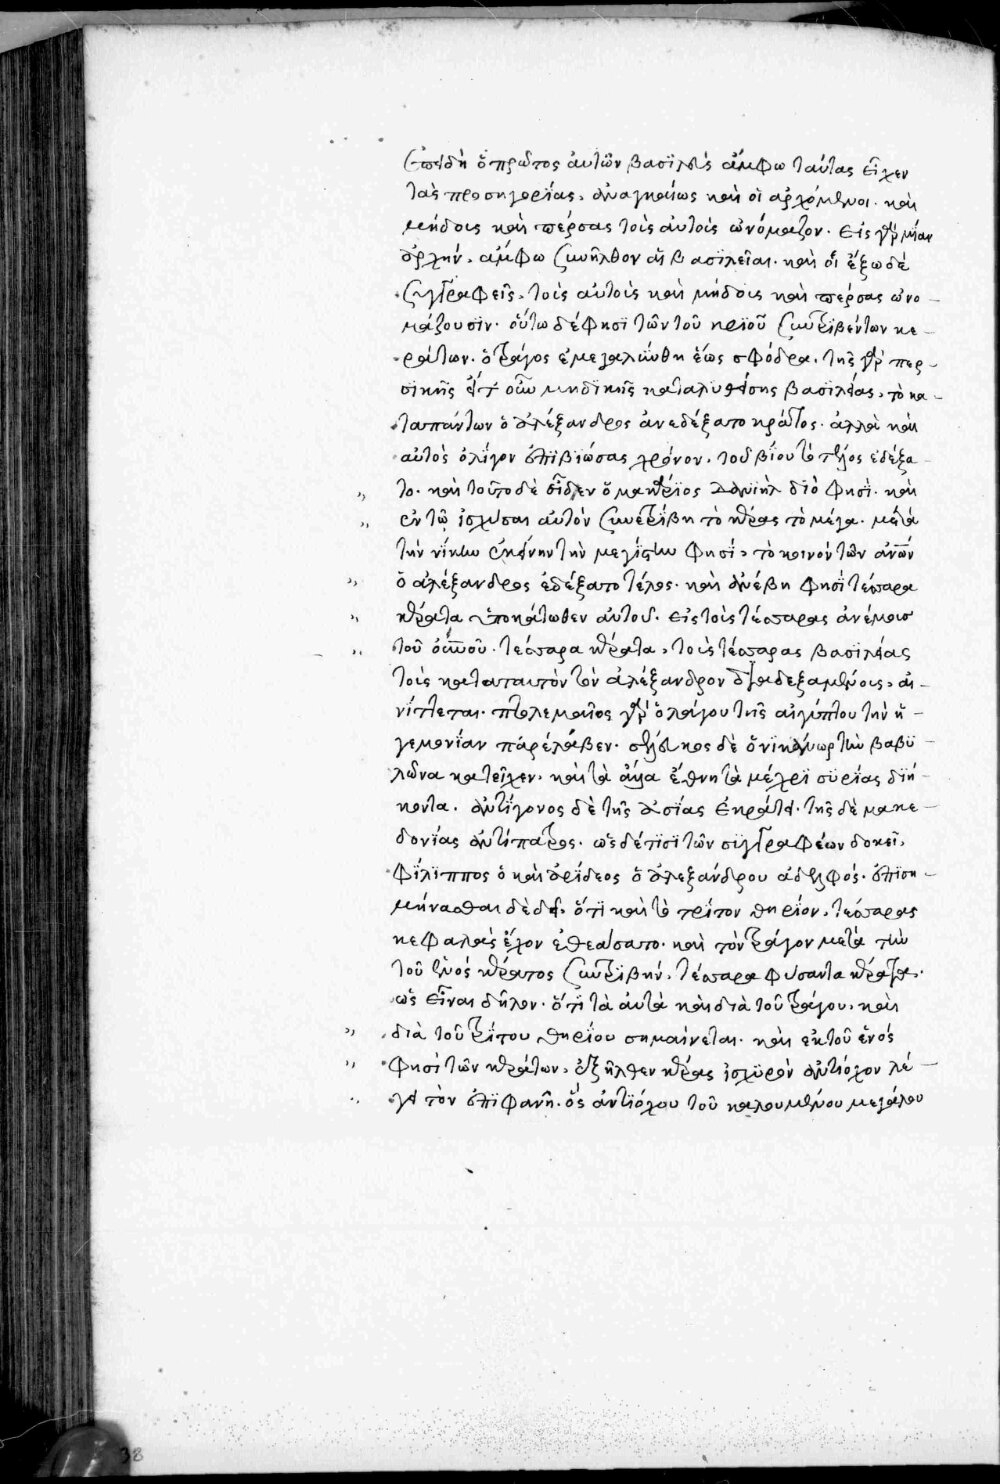 ἐπειδὴ ὁ πρῶτος αὐτῶν βασιλεὺς ἄμφω ταύτας εἶχεν
τὰς προσηγορίας, ἀναγκαίως καὶ οἱ ἀρχόμενοι. καὶ
μήδοις καὶ πέρσας τοὺς αὐτοὺς ὠνόμαζον. εἰς γὰρ μίαν
ἀρχήν, ἄμφω συνῆλθον αἱ βασιλεῖαι. καὶ οἱ ἔξω δὲ
συγγραφεῖς, τοὺς αὐτοὺς καὶ μήδους καὶ πέρσας ὀνο-
μάζουσϊν. οὕτω δέ φησϊ τῶν τοῦ κριοῦ συντριβέντων κε-
ράτων. ὁ τράγος ἐμεγαλύνθη ἕως σφόδρα. τῆς γὰρ περ-
σϊκῆς εἴτ οὖν μηδϊκῆς καταλυθείσης βασϊλείας, τὸ κα-
ταπάντων ὁ ἀλέξανδρος ἀνεδέξατο κράτος. ἀλλὰ καὶ
αὐτὸς ὀλίγον ἐπιβϊώσας χρόνον. τοῦ βίου τὸ τέλος ἐδέξα-
το. καὶ τοῦτο δὲ εἶδεν ὁ μακάρϊος δανϊὴλ διό φησϊ. καὶ
ἐν τῷ ἰσχύσαι αὐτὸν συνετρίβη τὸ κέρας τὸ μέγα. μετὰ
τὴν νίκην ἐκείνην τὴν μεγίστην φησί, τὸ κοινὸν τῶν ἀνων
ὁ ἀλέξανδρος ἐδέξατο τέλος. καὶ ἀνέβη φησὶ τέσσαρα
κέρατα ὑποκάτωθεν αὐτοῦ. εἰς τοὺς τέσσαρας ἀνέμους
τοῦ οὐνοῦ. τέσσαρα κέρατα, τοὺς τέσσαρας βασιλέας
τοὺς καταταυτὸν τὸν ἀλέξανδρον διαδεξαμένους, αἰ-
νίττεται. πτολεμαῖος γὰρ ὁ λάγου τῆς αἰγύπτου τὴν ἡ-
γεμονΐαν παρέλαβεν. σέλευκος δὲ ὁ νϊκάνωρ τὴν βαβυ-
λῶνα κατεῖχεν. καὶ τὰ ἄλλα ἔθνη τὰ μέχρϊ συρίας διή-
κοντα. ἀντΐγονος δὲ τῆς ἀσίας ἐκράτει. τῆς δὲ μακε-
δονίας ἀντίπατρος. ὡς δέ τϊσϊ τῶν συγγραφέων δοκεῖ,
φίλιππος ὁ καὶ ἀρίδεος ὁ ἀλεξάνδρου ἀδελφός. ἐπϊση-
μήνασθαι δὲ δεῖ, ὅτϊ καὶ τὸ τρΐτον θηρίον, τέσσαρας
κεφαλὰς ἔχον ἐθεάσατο. καὶ τὸν τράγον μετὰ τὴν
τοῦ ἑνὸς κέρατος συντρϊβήν, τέσσαρα φύσαντα κέρατα.
ὡς εἶναι δῆλον. ὅτϊ τὰ αὐτὰ καὶ διὰ τοῦ τράγου, καὶ
διὰ τοῦ τρΐτου θηρΐου σημαίνεται. καὶ ἐκ τοῦ ἑνός
φησὶ τῶν κεράτων, ἐξῆλθεν κέρας ἰσχυρὸν ἀντϊόχον λέ-
γει τὸν ἐπϊφανῆ. ὃς ἀντϊόχου τοῦ καλουμένου μεγάλου
38